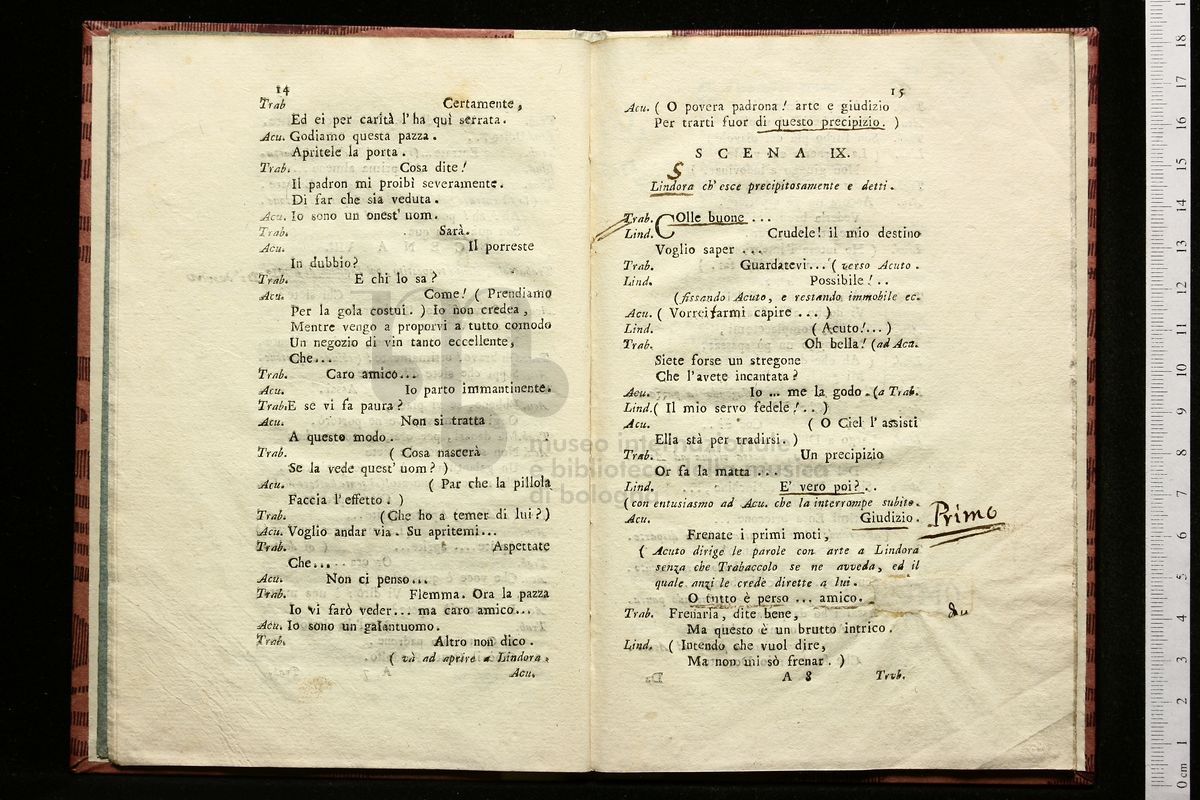 14
Trab Certamente,
Ed ei per carità l'ha quì serrata.
Acu. Godiamo questa pazza.
Apritele la porta.
Trab. Cosa dite!
Il padron mi proibì severamente.
Di far che sia veduta.
Acu. Io sono un onest' uom.
Trab. Sarà.
Acu. Il porreste
In dubbio?
Trab. E chi lo sa?
Acu. Come! ( Prendiamo
Per la gola costui. ) Io non credea,
Mentre vengo a proporvi a tutto comodo
Un negozio di vin tanto eccellente,
Che...
Trab. Caro amico...
Acu. Io parto immantinente.
Trab. E se vi fa paura?
Acu. Non si tratta
A questo modo.
Trab. ( Cosa nascerà
Se la vede quest' uom? )
Acu. ( Par che la pillola
Faccia l'effetto. )
Trab. (Che ho a temer di lui?)
Acu. Voglio andar via. Su apritemi...
Trab. Aspettate
Che....
Acu. Non ci penso...
Trab. Flemma. Ora la pazza
Io vi farò veder... ma caro amico...
Acu. Io sono un galantuomo.
Trab. Altro non dico.
( và ad aprire a Lindora,
Acu.
15
Acu. ( O povera padrona! arte e giudizio
Per trarti fuor di questo precipizio. )
SCENA IX.
S
Lindora ch'esce precipitosamente e detti.
Trab. COlle buone ...
Lind. Crudele! il mio destino
Voglio saper ...
Trab. Guardatevi... ( verso Acuto.
Lind. Possibile!..
(fissando Acuto, e restando immobile ec.
Acu. ( Vorrei farmi capire ... )
Lind. ( Acuto!... )
Trab. Oh bella! (ad Acu.
Siete forse un stregone
Che l'avete incantata?
Acu. Io ... me la godo. (a Trab.
Lind. ( Il mio servo fedele!.. )
Acu. ( O Ciel l'assisti
Ella stà per tradirsi. )
Trab. Un precipizio
Or fa la matta ...
Lind. E' vero poi?..
(con entusiasmo ad Acu. che la interrompe subito.
Acu. Giudizio. Primo
Frenate i primi moti,
( Acuto dirige le parole con arte a Lindora
senza che Trabaccolo se ne avveda, ed il
quale anzi le crede dirette a lui.
O tutto è perso ... amico.
Trab. Frenarla, dite bene,
Ma questo è un brutto intrico.
Lind. ( Intendo che vuol dire,
Ma non mi sò frenar. )
A 8 Trab.
museo internazionale
e biblioteca della musica
di bologna